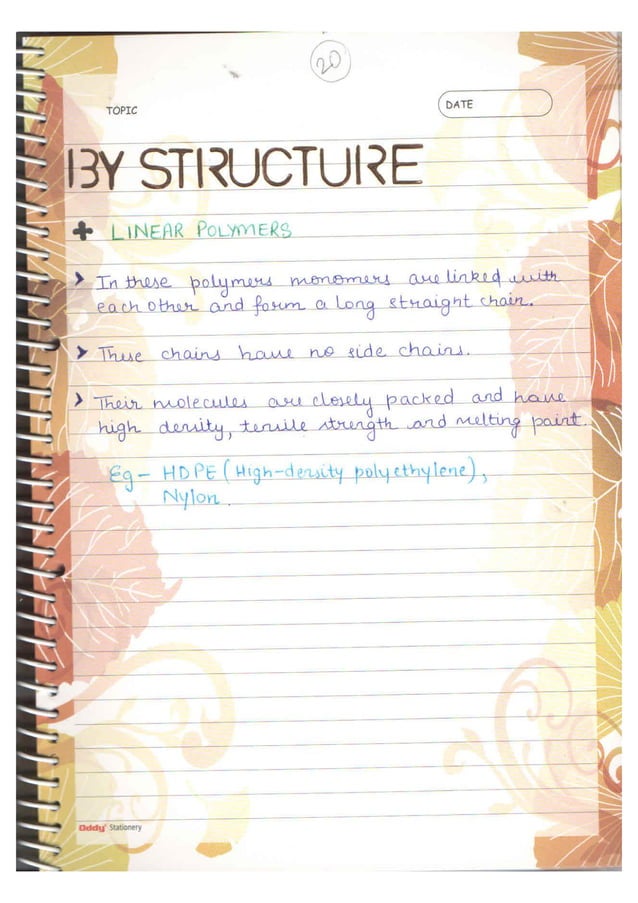 20
TOPIC
DATE
BY STRUCTURE
+ LINEAR POLYMERS
In these polymers monomers are linked with
each other and form a long straight chain.
These chains have no side chains.
Their molecules are closely packed and have
high density, tensile strength and melting point.
Eg - HDPE (High-density polyethylene),
Nylon.
Oddy Stationery